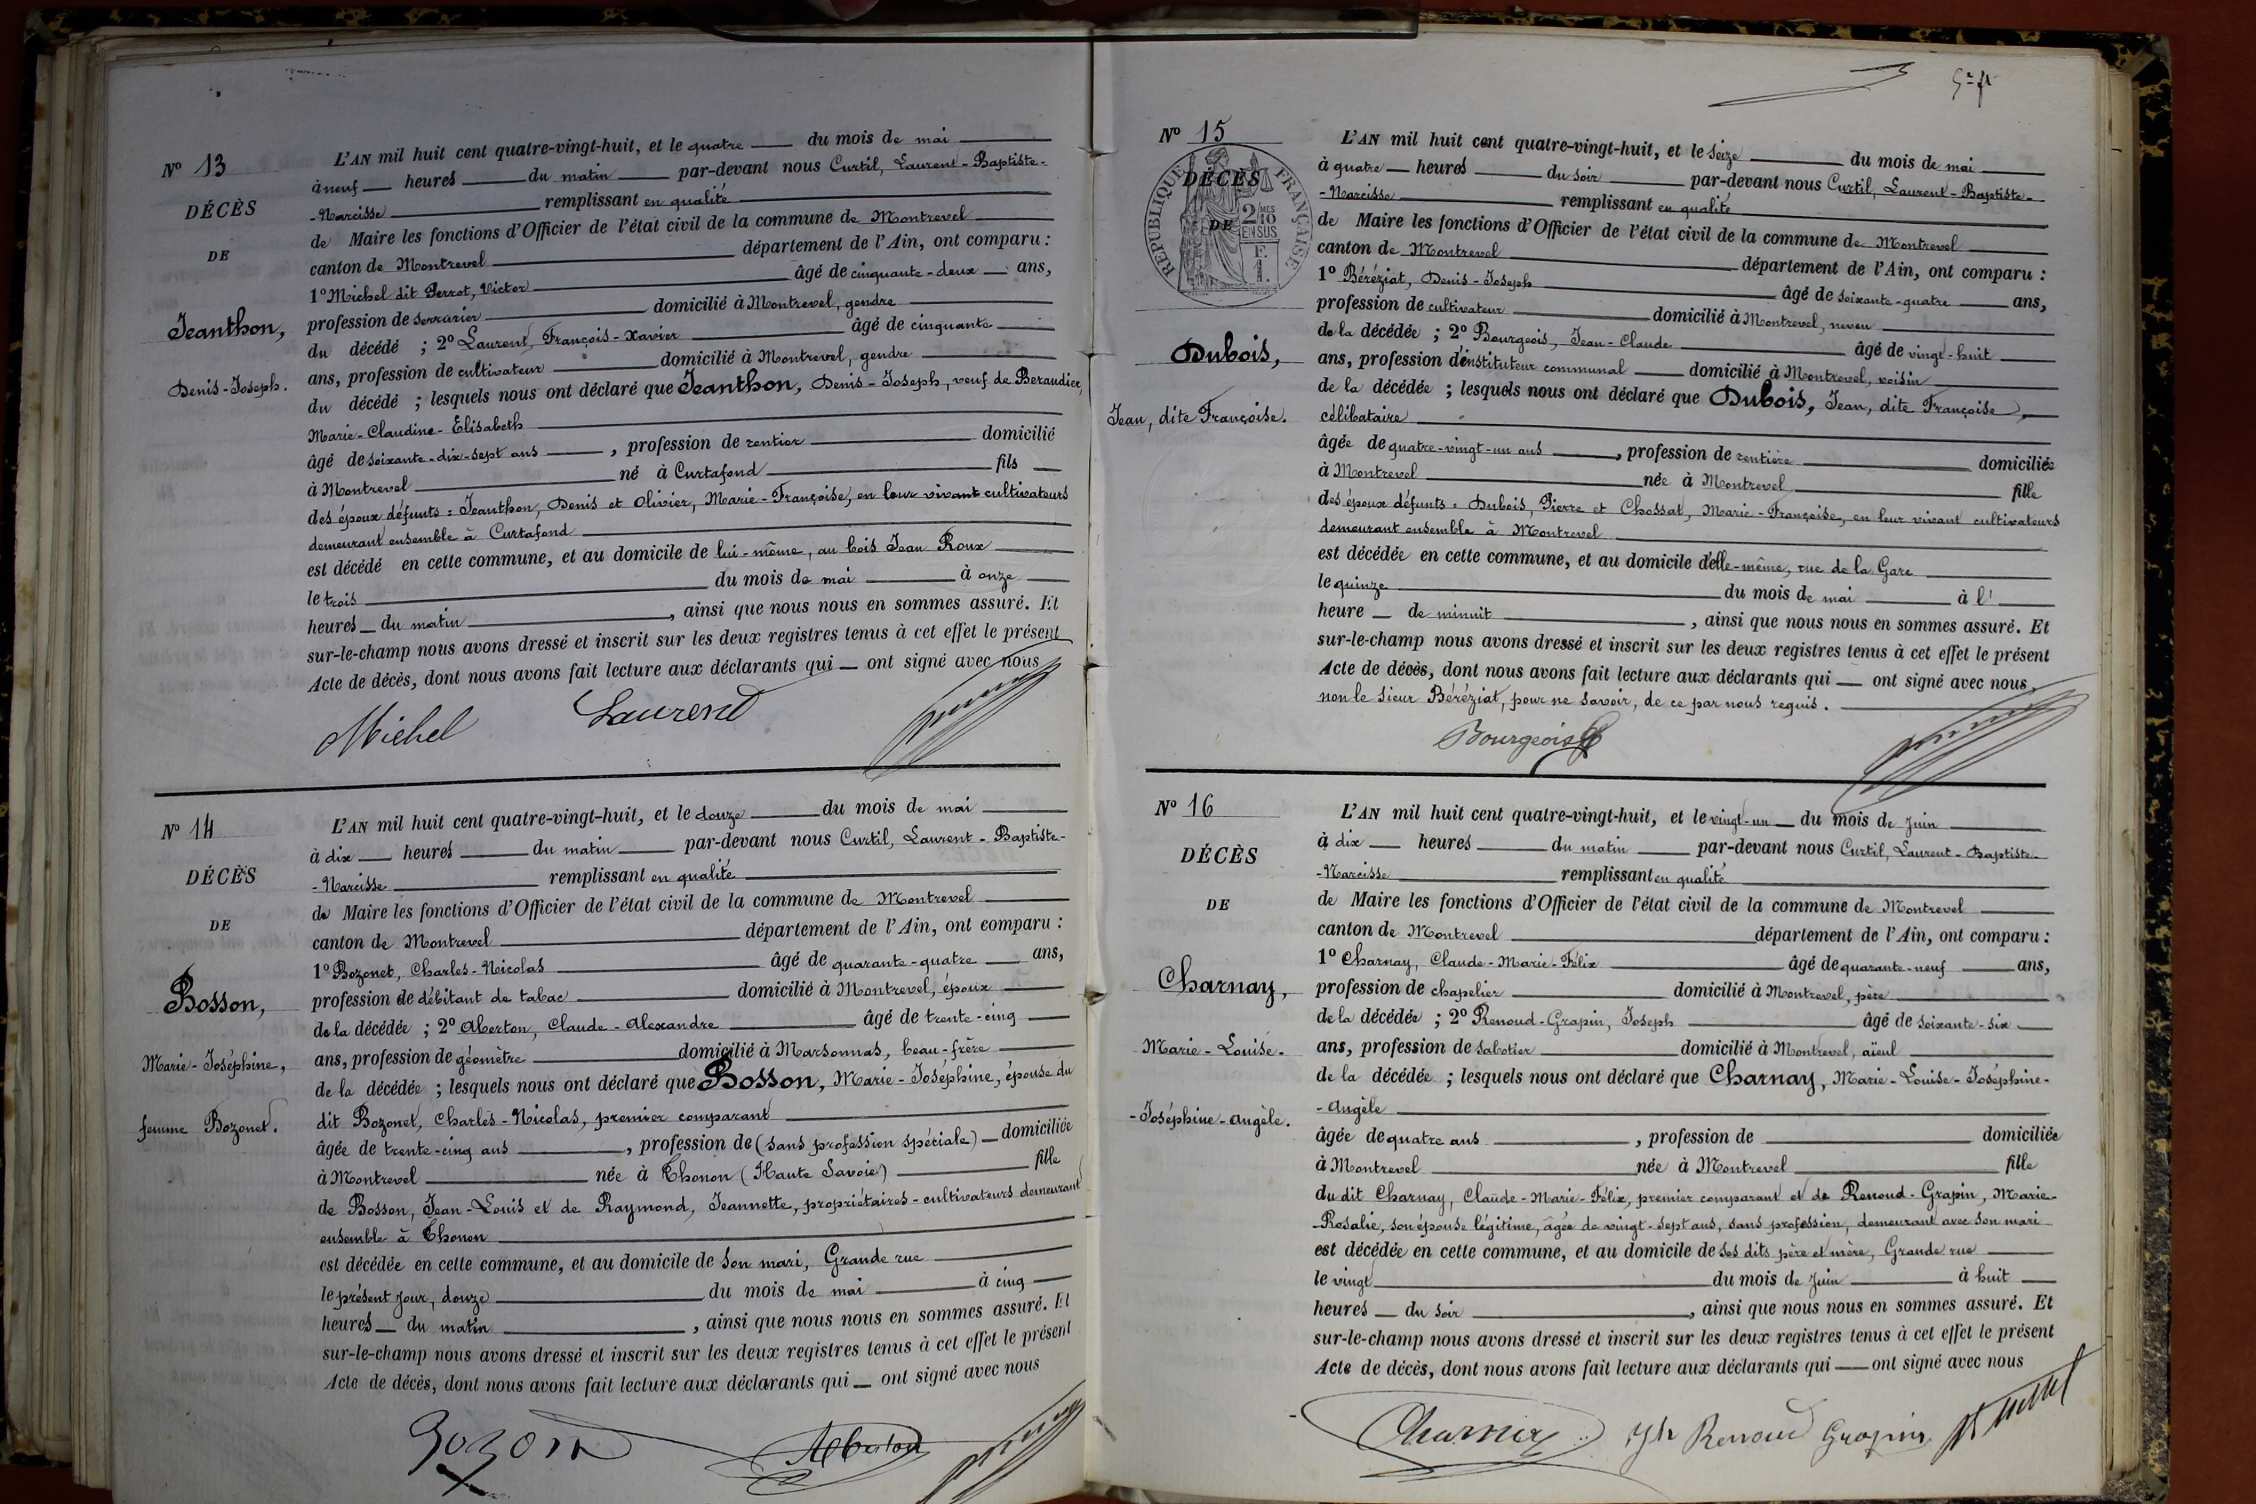 Nº 13
DÉCÈS
DE
Jeanthon,
Denis-Joseph.
L'AN mil huit cent quatre-vingt-huit, et le quatre du mois de mai
à neuf heures du matin par-devant nous Curtil, Laurent-Baptiste-
-Narcisse remplissant en qualité
de Maire les fonctions d'Officier de l'état civil de la commune de Montrevel
canton de Montrevel département de l'Ain, ont comparu :
1º Michel dit Perrot, Victor âgé de cinquante-deux ans,
profession de serrurier domicilié à Montrevel, gendre
du décédé ; 2º Laurent, François-Xavier âgé de cinquante
ans, profession de cultivateur domicilié à Montrevel, gendre
du décédé ; lesquels nous ont déclaré que Jeanthon, Denis-Joseph, veuf de Beraudier,
Marie-Claudine-Elisabeth
âgé de soixante-dix-sept ans, profession de rentier domicilié
à Montrevel né à Curtafond fils
des époux défunts : Jeanthon, Denis et Olivier, Marie-Françoise, en leur vivant cultivateurs
demeurant ensemble à Curtafond
est décédé en cette commune, et au domicile de lui-même, au bois Jean Roux
le trois du mois de mai à onze
heures du matin, ainsi que nous nous en sommes assuré. Et
sur-le-champ nous avons dressé et inscrit sur les deux registres tenus à cet effet le présent
Acte de décès, dont nous avons fait lecture aux déclarants qui ont signé avec nous
Michel Laurend
Nº 14
DÉCÈS
DE
Bosson,
Marie-Joséphine,
femme Bozonet.
L'AN mil huit cent quatre-vingt-huit, et le douze du mois de mai
à dix heures du matin par-devant nous Curtil, Laurent-Baptiste-
-Narcisse remplissant en qualité
de Maire les fonctions d'Officier de l'état civil de la commune de Montrevel
canton de Montrevel département de l'Ain, ont comparu :
1º Bozonet, Charles-Nicolas âgé de quarante-quatre ans,
profession de débitant de tabac domicilié à Montrevel, époux
de la décédée ; 2º Aberton, Claude-Alexandre âgé de trente-cinq
ans, profession de géomètre domicilié à Marsonnas, beau-frère
de la décédée ; lesquels nous ont déclaré que Bosson, Marie-Joséphine, épouse du
dit Bozonet, Charles-Nicolas, premier comparant
âgée de trente-cinq ans, profession de (sans profession spéciale) domiciliée
à Montrevel née à Thonon (Haute Savoie) fille
de Bosson, Jean-Louis et de Raymond, Jeannette, propriétaires-cultivateurs demeurant
ensemble à Thonon
est décédée en cette commune, et au domicile de son mari, Grande rue
le présent jour, douze du mois de mai à cinq
heures du matin, ainsi que nous nous en sommes assuré. Et
sur-le-champ nous avons dressé et inscrit sur les deux registres tenus à cet effet le présent
Acte de décès, dont nous avons fait lecture aux déclarants qui ont signé avec nous
Nº 15
RÉPUBLIQUE FRANÇAISE
2 MES
10
EN SUS
F.
1.
DÉCÈS
DE
Dubois,
Jean, dite Françoise.
L'AN mil huit cent quatre-vingt-huit, et le seize du mois de mai
à quatre heures du soir par-devant nous Curtil, Laurent-Baptiste-
-Narcisse remplissant en qualité
de Maire les fonctions d'Officier de l'état civil de la commune de Montrevel
canton de Montrevel département de l'Ain, ont comparu :
1º Béréziat, Denis-Joseph âgé de soixante-quatre ans,
profession de cultivateur domicilié à Montrevel, neveu
de la décédée ; 2º Bourgeois, Jean-Claude âgé de vingt-huit
ans, profession d'instituteur communal domicilié à Montrevel, voisin
de la décédée ; lesquels nous ont déclaré que Dubois, Jean, dite Françoise,
célibataire
âgée de quatre-vingt-un ans, profession de rentière domiciliée
à Montrevel née à Montrevel fille
des époux défunts : Dubois, Pierre et Chossat, Marie-Françoise, en leur vivant cultivateurs
demeurant ensemble à Montrevel
est décédée en cette commune, et au domicile d'elle-même, rue de la Gare
le quinze du mois de mai à l'
heure de minuit, ainsi que nous nous en sommes assuré. Et
sur-le-champ nous avons dressé et inscrit sur les deux registres tenus à cet effet le présent
Acte de décès, dont nous avons fait lecture aux déclarants qui ont signé avec nous,
non le sieur Béréziat, pour ne savoir, de ce par nous requis.
Bourgeois
Nº 16
DÉCÈS
DE
Charnay,
Marie-Louise-
-Joséphine-Angèle.
L'AN mil huit cent quatre-vingt-huit, et le vingt-un du mois de Juin
à dix heures du matin par-devant nous Curtil, Laurent-Baptiste-
-Narcisse remplissant en qualité
de Maire les fonctions d'Officier de l'état civil de la commune de Montrevel
canton de Montrevel département de l'Ain, ont comparu :
1º Charnay, Claude-Marie-Félix âgé de quarante-neuf ans,
profession de chapelier domicilié à Montrevel, père
de la décédée ; 2º Renoud-Grapin, Joseph âgé de soixante-six
ans, profession de sabotier domicilié à Montrevel, aïeul
de la décédée ; lesquels nous ont déclaré que Charnay, Marie-Louise-Joséphine-
-Angèle
âgée de quatre ans, profession de domiciliée
à Montrevel née à Montrevel fille
du dit Charnay, Claude-Marie-Félix, premier comparant et de Renoud-Grapin, Marie-
-Rosalie, son épouse légitime, âgée de vingt-sept ans, sans profession, demeurant avec son mari
est décédée en cette commune, et au domicile de ses dits père et mère, Grande rue
le vingt du mois de Juin à huit
heures du soir, ainsi que nous nous en sommes assuré. Et
sur-le-champ nous avons dressé et inscrit sur les deux registres tenus à cet effet le présent
Acte de décès, dont nous avons fait lecture aux déclarants qui ont signé avec nous
Renoud Grapin